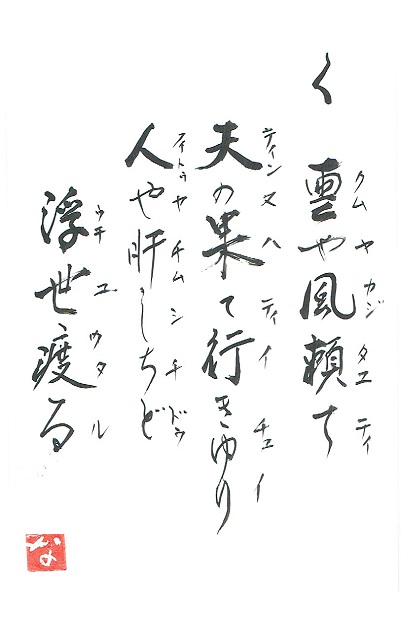 く 雲や風頼て
クムヤカジタユティ
天の果て行きゆり
ティンヌハティイチュイ
人や肝しちど
フィトゥヤチムシチドゥ
浮世渡る
ウチユワタル
な